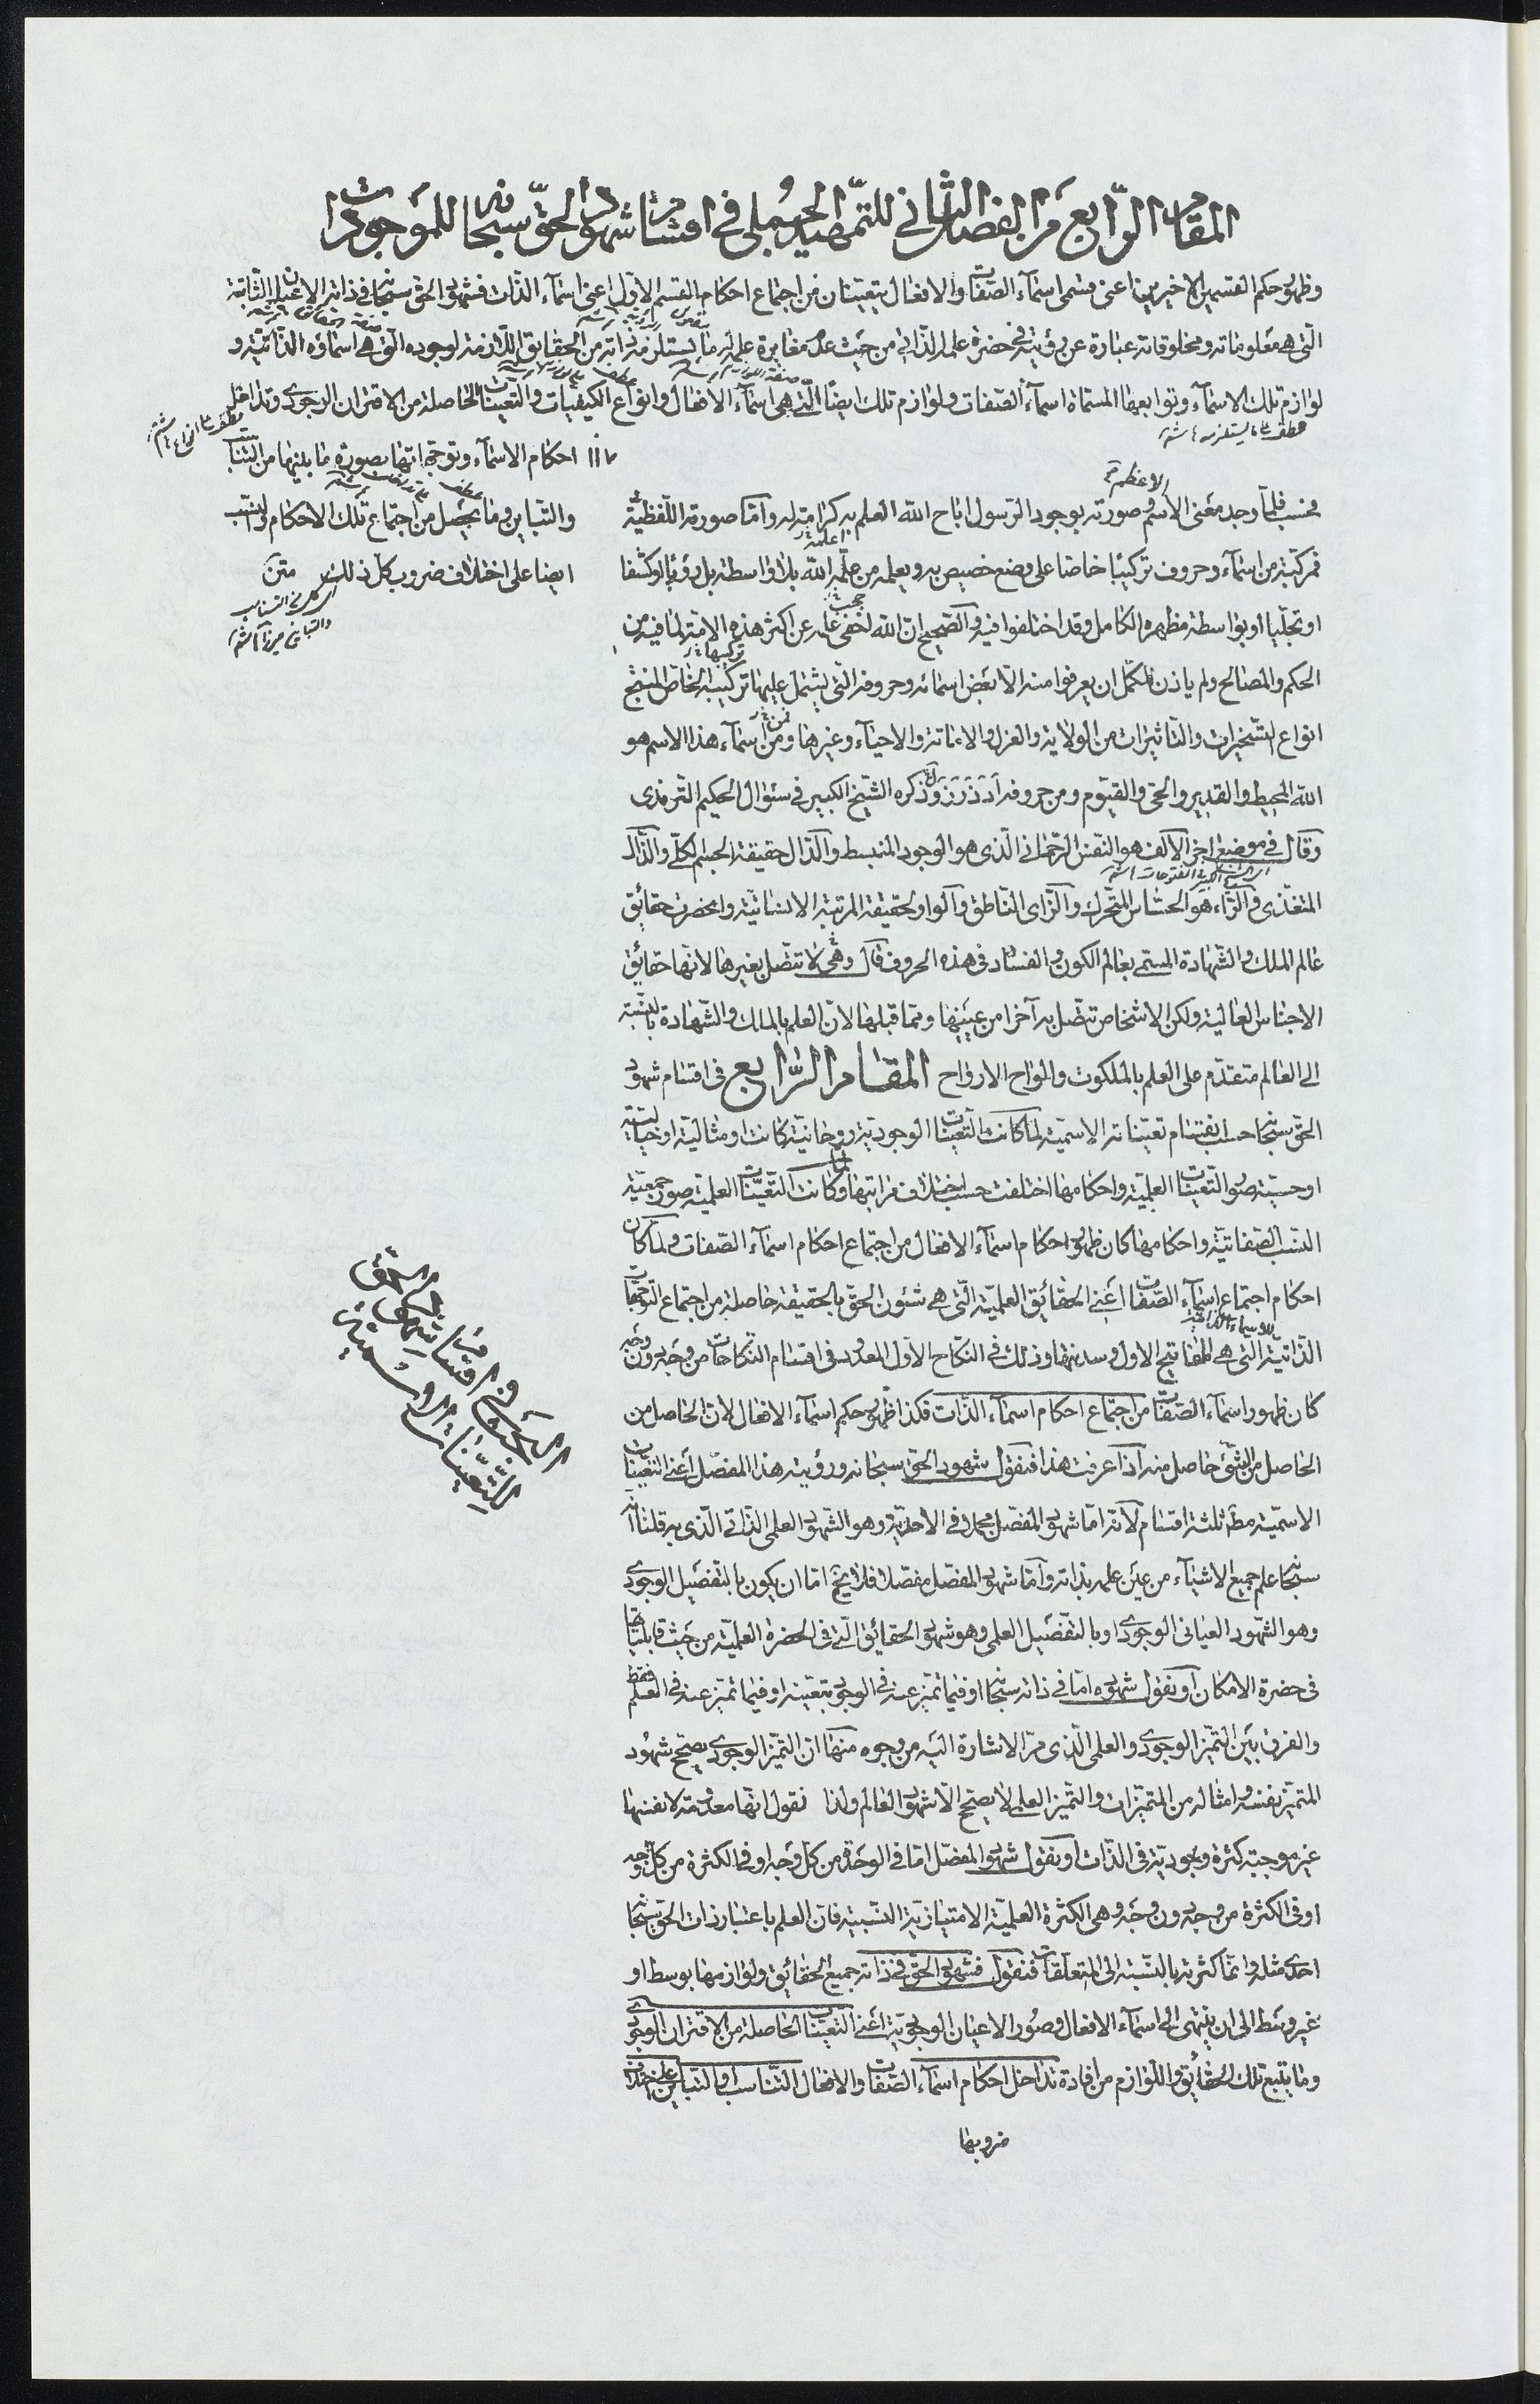 المقام الرابع من الفصل الثاني للتمهيد الجملي في اقسام شهود الحق سبحانه للموجودات
وظهور حكم القسمين الاخيرين اعنى قسمى اسماء الصّفات والافعال يتعينان من اجتماع احكام القسم الاول اعنى اسماء الذات فشهود الحق سبحانه في ذاته الاعيان الثابتة
الّتى هى معلوماته ومخلوقاته عبارة عن رؤيته في حضرة علمه الذاتى من حيث عدم مغايرة علمه له ما يستلزمه ذاته من الحقايق اللازمة لوجوده الّتى هى اسماؤه الذاتيّة و
لوازم تلك الاسماء وتوابعها المسماة اسماء الصّفات ولوازم تلك ايضاً الّتى هى اسماء الافعال وانواع الكيفيات والتعينات الحاصلة من الاقتران الوجودى وتداخل
احكام الاسماء وتوجهاتها بصورة ما بينها من التناسب
والتباين وما يحصل من اجتماع تلك الاحكام والنسب
ايضا على اختلاف ضروب كل ذلك متن
الاعظم
فحسب فلما وجد معنى الاسم وصورته بوجود الرسول اباح الله العلم به كرامة له وامّا صورته اللّفظيّة
فمركّبة من اسماء وحروف تركيبًا خاصّا على وضع خصيص به ويعلمه من علّمه الله بلا واسطة بل رؤيا او كشفا
او تجلّيا او بواسطة مظهره الكامل وقد اختلفوا فيه والصّحيح انّ الله اخفى علمه عن اكثر هذه الامة لما فيه من
الحكم والمصالح ولم ياذن للكمّل ان يعرفوا منه الا بعض اسمائه وحروفه الّتى يشتمل عليها تركيبه الخاصّ المنتج
انواع التسخيرات والتأثيرات من الولاية والعزل والاماتة والاحياء وغيرها ومن اسماء هذا الاسم هو
الله المحيط والقدير والحىّ والقيّوم ومن حروفه ا د ذ ر ز و ذكره الشّيخ الكبير في سئوال الحكيم التّرمذى
وقال في موضع اخر الالف هو النّفس الرّحمانى الّذى هو الوجود المنبسط والدّال حقيقة الجسم الكلّى والذّال
المتغذّى والرّاء هو الحسّاس المتحرّك والزّاى النّاطق والواو حقيقة المرتبة الانسانيّة وانحصرت حقائق
عالم الملك والشّهادة المسمّى بعالم الكون والفساد في هذه الحروف قال وهى لا تتصّل بغيرها لانّها حقائق
الاجناس العالية ولكن الاشخاص تتصّل به آخرا من عينها وممّا قبلها لانّ العلم بالملك والشّهادة بالنسبة
الى العالم متقدّم على العلم بالملكوت والواح الارواح المقام الرّابع في اقسام شهود
الحقّ سبحانه حسب انقسام تعيناته الاسميّة لما كانت التعيّنات الوجودية روحانيّة كانت او مثاليّة او خيالية
او حسيّة صور التّعينات العلميّة واحكامها اختلفت حسب اختلاف مراتبها ولما كانت التّعيّنات العلميّة صور جمعيّة
النسب الصّفاتيّة واحكامها كان ظهور احكام اسماء الافعال من اجتماع احكام اسماء الصّفات ولما كان
احكام اجتماع اسماء الصّفات اعنى الحقائق العلميّة الّتى هى شئون الحقّ بالحقيقة حاصلة من اجتماع التوجّهات
الذّاتيّة الّتى هى المفاتيح الاول وسدنتها وذلك في النّكاح الاوّل المعدود في اقسام النّكاحات من وجه دون وجه
كان ظهور اسماء الصّفات من اجتماع احكام اسماء الذّات فكذا ظهور حكم اسماء الافعال لانّ الحاصل من
الحاصل من الشّىء حاصل منه اذا عرفت هذا فنقول شهود الحقّ سبحانه ورؤيته هذا المفصّل اعنى التعيّنات
الاسميّة مطلقا ثلثة اقسام لانّه امّا شهود المفصّل مجملا في الاحديّة وهو الشّهود العلمى الذّاتى الّذى به قلنا انّه
سبحانه علم جميع الاشياء من عين علمه بذاته وامّا شهود المفصّل مفصّلا فلا يخ امّا ان يكون بالتفصيل الوجودى
وهو الشّهود العيانى الوجودى او بالتفّصيل العلمى وهو شهود الحقائق الّتى في الحضرة العلميّة من حيث قابلياتها
في حضرة الامكان او نقول شهوده امّا في ذاته سبحانه او فيما تميّز عنه في الوجود بتعيّنه او فيما تميّز عنه في العلم فقط
والفرق بين التّميّز الوجودى والعلمى الّذى مرّ الاشارة اليه من وجوه منها ان التميّز الوجودى يصحّح شهود
المتميّز نفسه وامثاله من المتميّزات والتميّز العلمى لا يصحّح الا شهود العالم ولذا نقول انّها معدومة لانفسها
غير موجبة كثرة وجوديّة في الذّات او نقول شهود المفصّل امّا في الوحدة من كلّ وجه او في الكثرة من كلّ وجه
او في الكثرة من وجه دون وجه وهى الكثرة العلميّة الامتيازيّة النّسبيّة فانّ العلم باعتبار ذات الحقّ سبحانه
احدىّ مثله وانّما كثرته بالنّسبة الى المتعلّقات فنقول فشهود الحقّ في ذاته جميع الحقائق ولوازمها بوسط او
غير وسط الى ان ينتهى الى اسماء الافعال وصور الاعيان الوجوديّة اعنى التعيّنات الحاصلة من الاقتران الوجودى
وما يتبع تلك الحقائق واللّوازم من افادة تداخل احكام اسماء الصّفات والافعال التّناسب او التباين على اختلاف
ضروبها